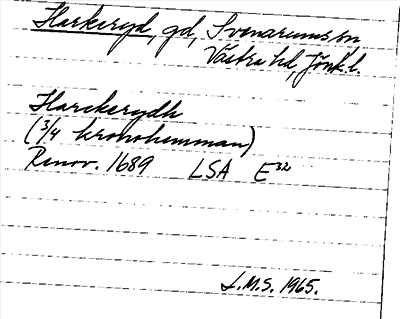 Harkeryd, gd, Svenarums sn
Västra hd, Jönk.l.
Harckerydh
(3/4 kronohemman)
Renov. 1689 LSA E32
L.M.S. 1965.